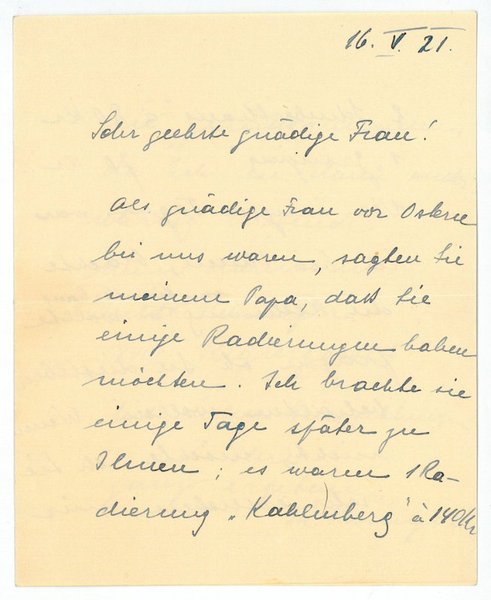 16. V. 21.
Sehr geehrte gnädige Frau!
Als gnädige Frau vor Ostern
bei uns waren, sagten Sie
meinem Papa, daß Sie
einige Radierungen haben
möchten. Ich brachte sie
einige Tage später zu
Ihnen; es waren 1 Ra-
dierung „Kahlenberg" à 140 Kr